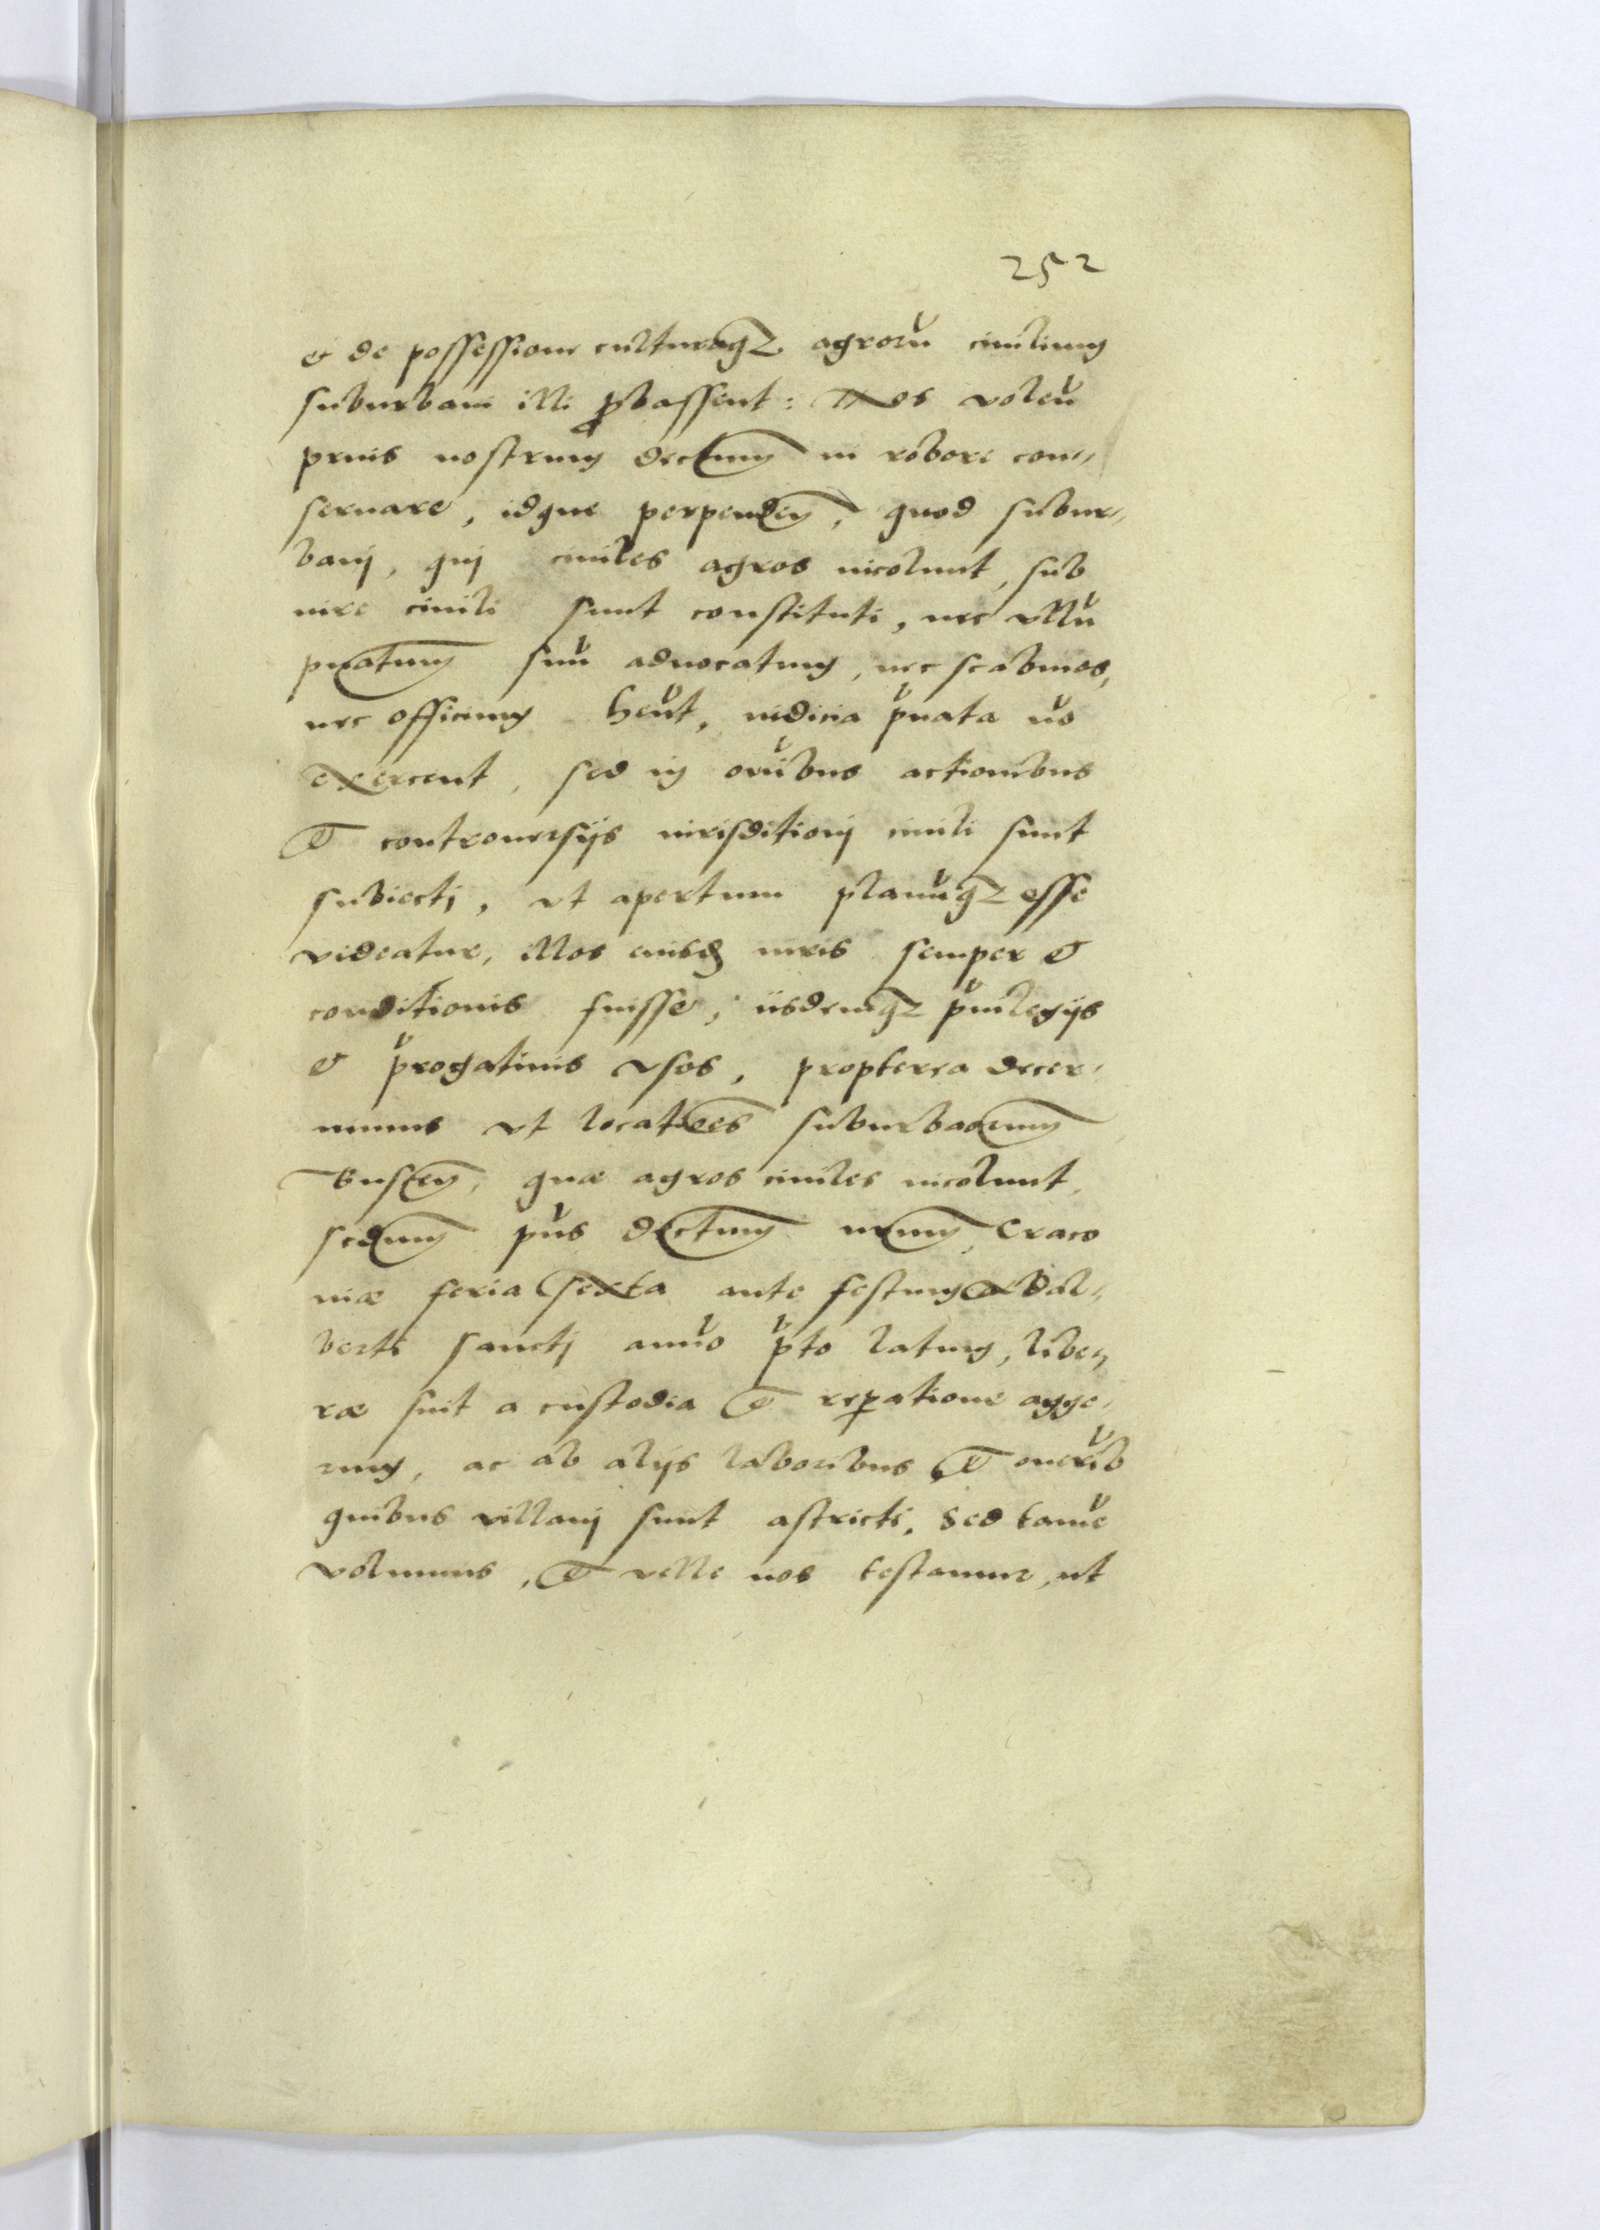 252
et de possessione culturaq3 agrorū ciuilium
suburbani illi ꝓbassent: Nos volen̄
prius nostrum decrtum in robore con„
seruare, idque perpenden, quod subur„
banj, quj ciuiles agros incolunt, sub
iure ciuili sunt constituti, nec vllū
priuatum suū aduocatum, nec scabinos,
nec officium hn̄t, iudicia p̄uata nō
exercent, sed in oīībus actionibus
et controuersijs iurisditionj ciuili sunt
subiectj, vt apertum planūq3 esse
videatur, illos eiusd iuris semper et
conditionis fuisse, iisdemq3 p̄uilegijs
et p̄rogatiuis vsos, propterea decer„
nimus vt locatões suburbanorum
Busten, quæ agros ciuiles incolunt,
scdum pūs dectum nrum, Craco
niæ feria sexta ante festum Adal„
berti sanctj anno p̄to latum, libe„
ræ sint a custodia et reꝑatione agge„
rum, ac ab alijs laboribus et onerib̄
quibus villanj sunt astricti. Sed tamē
volumus, et velle nos testamur, ut